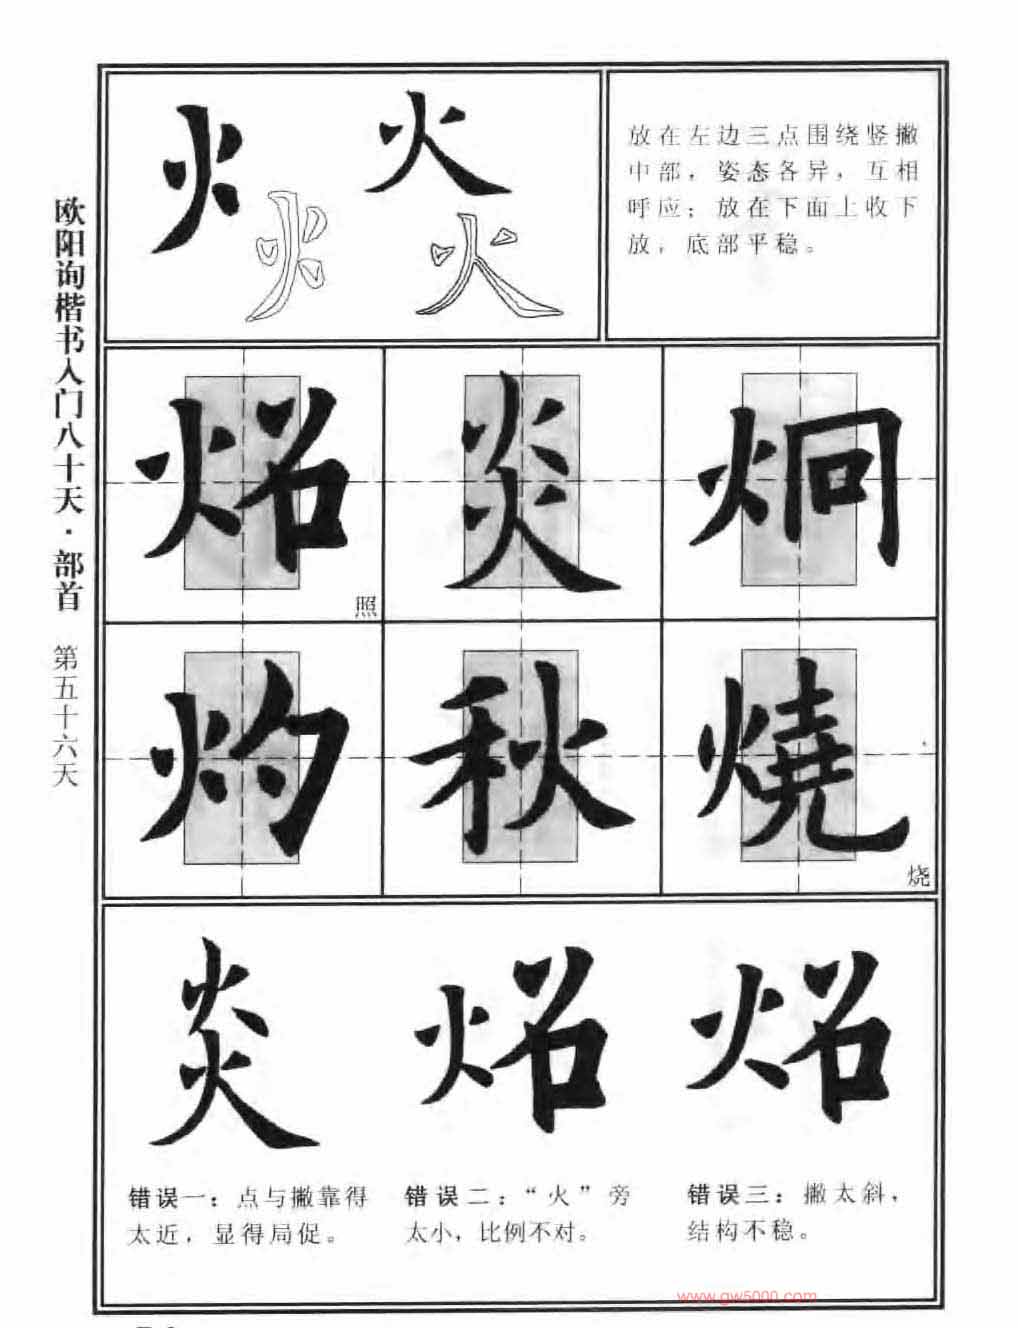 欧阳询楷书入门八十天·部首 第五十六天
火 火
放在左边三点围绕竖撇
中部，姿态各异，互相
呼应；放在下面上收下
放，底部平稳。
炤 炎 炯
照
灼 秋 燒
烧
炎 炤 炤
错误一：点与撇靠得
太近，显得局促。
错误二：“火”旁
太小，比例不对。
错误三：撇太斜，
结构不稳。
www.gw5000.com